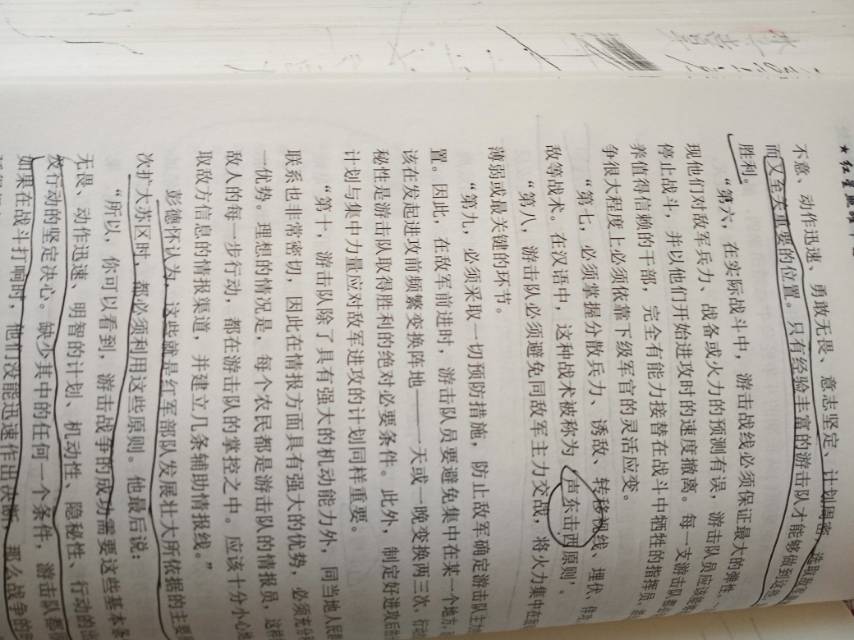 ★红星照耀中
不意、动作迅速、勇敢无畏、意志坚定、计划周密、选取敌军
而又至关重要的位置。只有经验丰富的游击队才能够做到这些
胜利。
“第六，在实际战斗中，游击战线必须保证最大的弹性。一
现他们对敌军兵力、战备或火力的预测有误，游击队员应该
停止战斗，并以他们开始进攻时的速度撤离。每一支游击队
养值得信赖的干部，完全有能力接替在战斗中牺牲的指挥员，
争很大程度上必须依靠下级军官的灵活应变。
“第七，必须掌握分散兵力、诱敌、转移视线、埋伏、佯
敌等战术。在汉语中，这种战术被称为‘声东击西原则’。
“第八，游击队必须避免同敌军主力交战，将火力集中在
薄弱或最关键的环节。
“第九，必须采取一切预防措施，防止敌军确定游击队主力
置。因此，在敌军前进时，游击队员要避免集中在某一个地方，
该在发起进攻前频繁变换阵地——一天或一晚变换两三次。行动
秘性是游击队取得胜利的绝对必要条件。此外，制定好进攻后
计划与集中力量应对敌军进攻的计划同样重要。
“第十，游击队除了具有强大的机动能力外，同当地人民
联系也非常密切，因此在情报方面具有强大的优势，必须充分
一优势。理想的情况是，每个农民都是游击队的情报员，这样
敌人的每一步行动，都在游击队的掌控之中。应该十分小心
取敌方信息的情报渠道，并建立几条辅助情报线。”
彭德怀认为，这些就是红军部队发展壮大所依据的主要
次扩大苏区时，都必须利用这些原则。他最后说：
“所以，你可以看到，游击战争的成功需要这些基本条
无畏、动作迅速、明智的计划、机动性、隐秘性、行动的
发行动的坚定决心。缺少其中的任何一个条件，游击队都
如果在战斗打响时，他们没能迅速作出决断，那么战争的